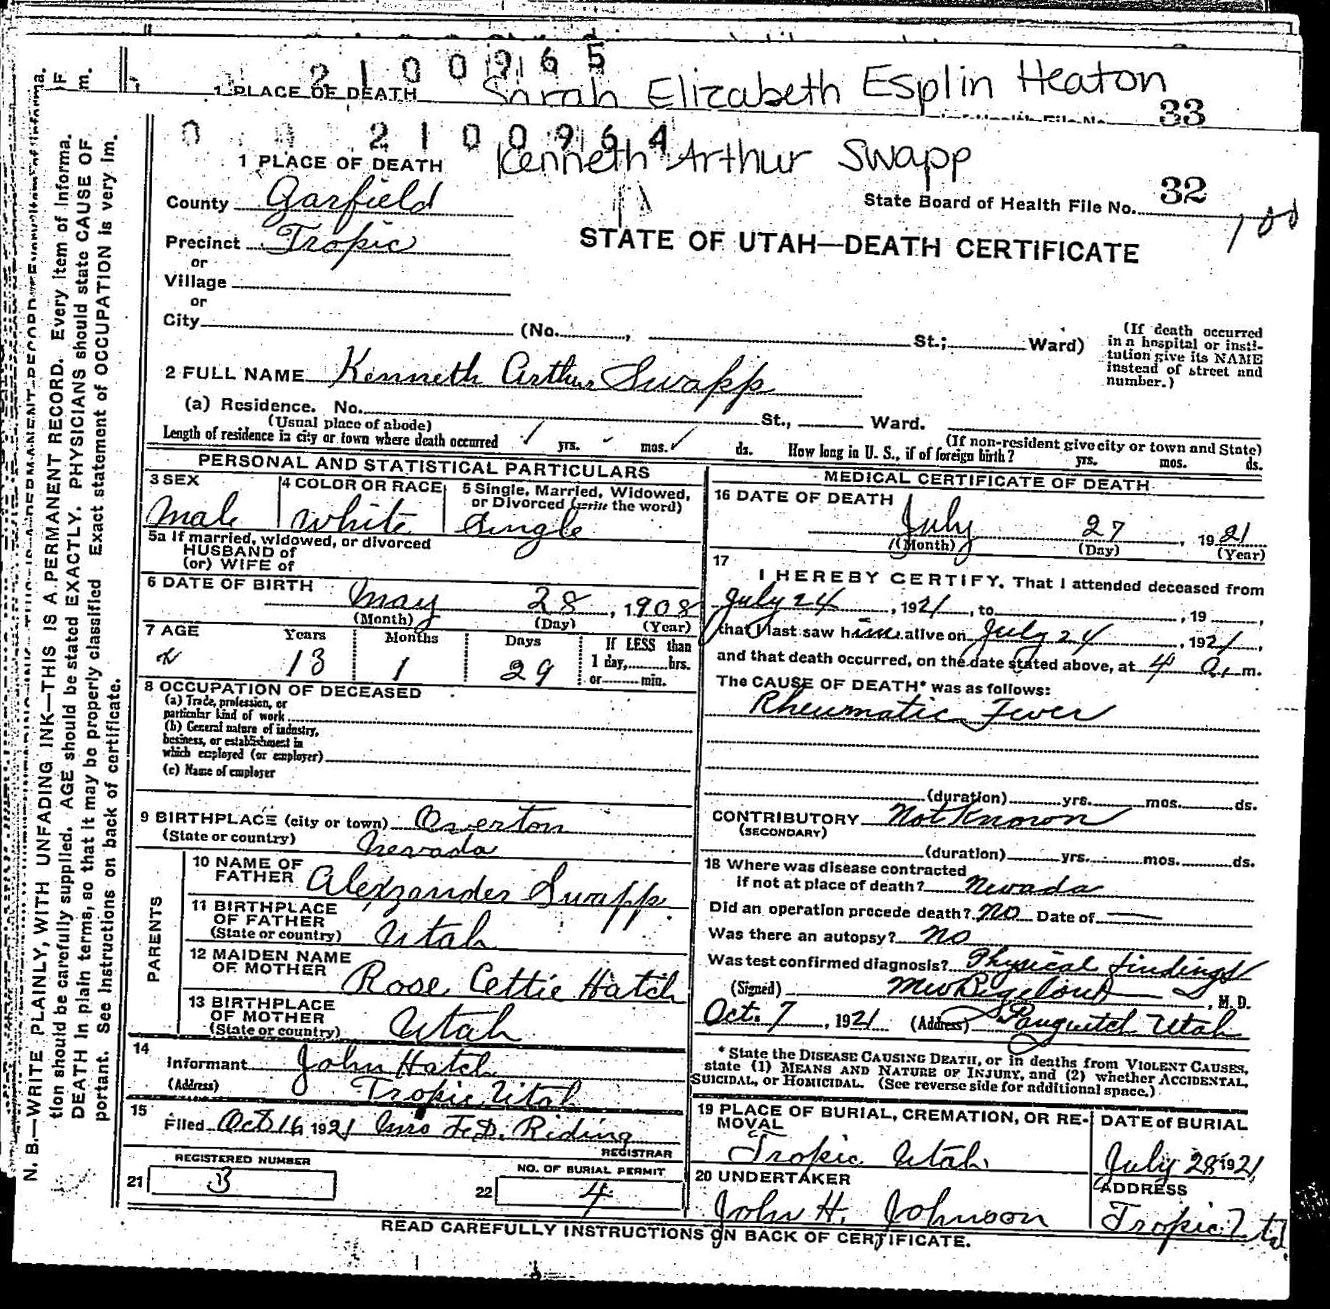 2100965
1 PLACE OF DEATH Sarah Elizabeth Esplin Heaton
33
0 0 2100964
1 PLACE OF DEATH Kenneth Arthur Swapp
County Garfield
State Board of Health File No. 32
100
Precinct Tropic
STATE OF UTAH—DEATH CERTIFICATE
or
Village
or
City (No. , St.; Ward)
(If death occurred in a hospital or insti-
tution give its NAME
instead of street and
number.)
2 FULL NAME Kenneth Arthur Swapp
(a) Residence. No. St., Ward.
(Usual place of abode) (If non-resident give city or town and State)
Length of residence in city or town where death occurred yrs. mos. ds. How long in U. S., if of foreign birth? yrs. mos. ds.
PERSONAL AND STATISTICAL PARTICULARS
3 SEX Male
4 COLOR OR RACE White
5 Single, Married, Widowed,
or Divorced (write the word)
Single
5a If married, widowed, or divorced
HUSBAND of
(or) WIFE of
6 DATE OF BIRTH May 28, 1908
(Month) (Day) (Year)
7 AGE Years Months Days If LESS than
13 1 29 1 day, hrs.
or min.
8 OCCUPATION OF DECEASED
(a) Trade, profession, or
particular kind of work
(b) General nature of industry,
business, or establishment in
which employed (or employer)
(c) Name of employer
9 BIRTHPLACE (city or town) Overton
(State or country) Nevada
PARENTS
10 NAME OF
FATHER Alexzander Swapp
11 BIRTHPLACE
OF FATHER
(State or country) Utah
12 MAIDEN NAME
OF MOTHER Rose Cettie Hatch
13 BIRTHPLACE
OF MOTHER
(State or country) Utah
14
Informant John Hatch
(Address) Tropic Utah
15
Filed Oct 16 1921 Mrs F.D. Riding
REGISTRAR
REGISTERED NUMBER
21 3
NO. OF BURIAL PERMIT
22 4
MEDICAL CERTIFICATE OF DEATH
16 DATE OF DEATH
July 27, 1921
(Month) (Day) (Year)
17
I HEREBY CERTIFY, That I attended deceased from
July 24, 1921, to , 19 ,
that I last saw him alive on July 24, 1921,
and that death occurred, on the date stated above, at 4 a. m.
The CAUSE OF DEATH* was as follows:
Rheumatic Fever
(duration) yrs. mos. ds.
CONTRIBUTORY Not Known
(SECONDARY)
(duration) yrs. mos. ds.
18 Where was disease contracted
if not at place of death? Nevada
Did an operation precede death? No Date of —
Was there an autopsy? no
Was test confirmed diagnosis? Physical findings
(Signed) , M. D.
Oct. 7, 1921 (Address) Panguitch Utah
* State the DISEASE CAUSING DEATH, or in deaths from VIOLENT CAUSES,
state (1) MEANS AND NATURE OF INJURY, and (2) whether ACCIDENTAL,
SUICIDAL, or HOMICIDAL. (See reverse side for additional space.)
19 PLACE OF BURIAL, CREMATION, OR RE-
MOVAL
Tropic Utah
DATE of BURIAL
July 28 1921
20 UNDERTAKER
John H. Johnson
ADDRESS
Tropic Utd.
READ CAREFULLY INSTRUCTIONS ON BACK OF CERTIFICATE.
N. B.—WRITE PLAINLY, WITH UNFADING INK—THIS IS A PERMANENT RECORD. Every item of informa-
tion should be carefully supplied. AGE should be stated EXACTLY. PHYSICIANS should state CAUSE OF
DEATH in plain terms, so that it may be properly classified. Exact statement of OCCUPATION is very im-
portant. See instructions on back of certificate.